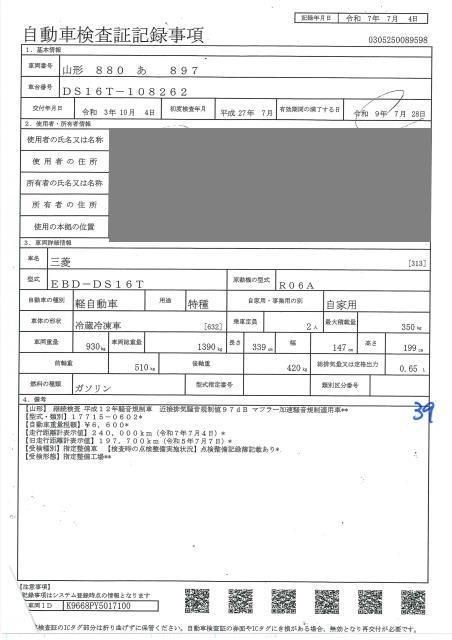 記録年月日 令和 7年 7月 4日
自動車検査証記録事項
0305250089598
1. 基本情報
車両番号 山形 880 あ 897
車台番号 DS16T-108262
交付年月日 令和 3年10月 4日 初度検査年月 平成27年 7月 有効期間の満了する日 令和 9年 7月 28日
2. 使用者・所有者情報
使用者の氏名又は名称
使用者の住所
所有者の氏名又は名称
所有者の住所
使用の本拠の位置
3. 車両詳細情報
車名 三菱 [313]
型式 EBD-DS16T 原動機の型式 R06A
自動車の種別 軽自動車 用途 特種 自家用・事業用の別 自家用
車体の形状 冷蔵冷凍車 [632] 乗車定員 2人 最大積載量 350kg
車両重量 930kg 車両総重量 1390kg 長さ 339cm 幅 147cm 高さ 199cm
前軸重 510kg 後軸重 420kg 総排気量又は定格出力 0.65 L
燃料の種類 ガソリン 型式指定番号 類別区分番号
4. 備考
【山形】 継続検査 平成12年騒音規制車 近接排気騒音規制値97dB マフラー加速騒音規制適用車**
【型式・類別】17715-0602*
【自動車重量税額】¥6,600*
【走行距離計表示値】240,000km(令和7年7月4日)*
【旧走行距離計表示値】197,700km(令和5年7月7日)*
【受検種別】指定整備車 【検査時の点検整備実施状況】点検整備記録簿記載あり*
【受検形態】指定整備工場**
39
【注意事項】
記録事項はシステム登録時点の情報となります
車両ID K9668PY5017100
車検査証のICタグ部分は折り曲げずに保管ください。自動車検査証の券面やICタグにき損がある場合、無効となり再交付が必要です。